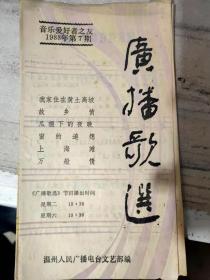 音乐爱好者之友
1988年第7期
廣播歌選
我家住在黄土高坡
故乡情
瓜棚下的夜晚
爸的迷惘
上海滩
万般情
《广播歌选》节目播出时间
星期二 18∶30
星期六 18∶30
温州人民广播电台文艺部编